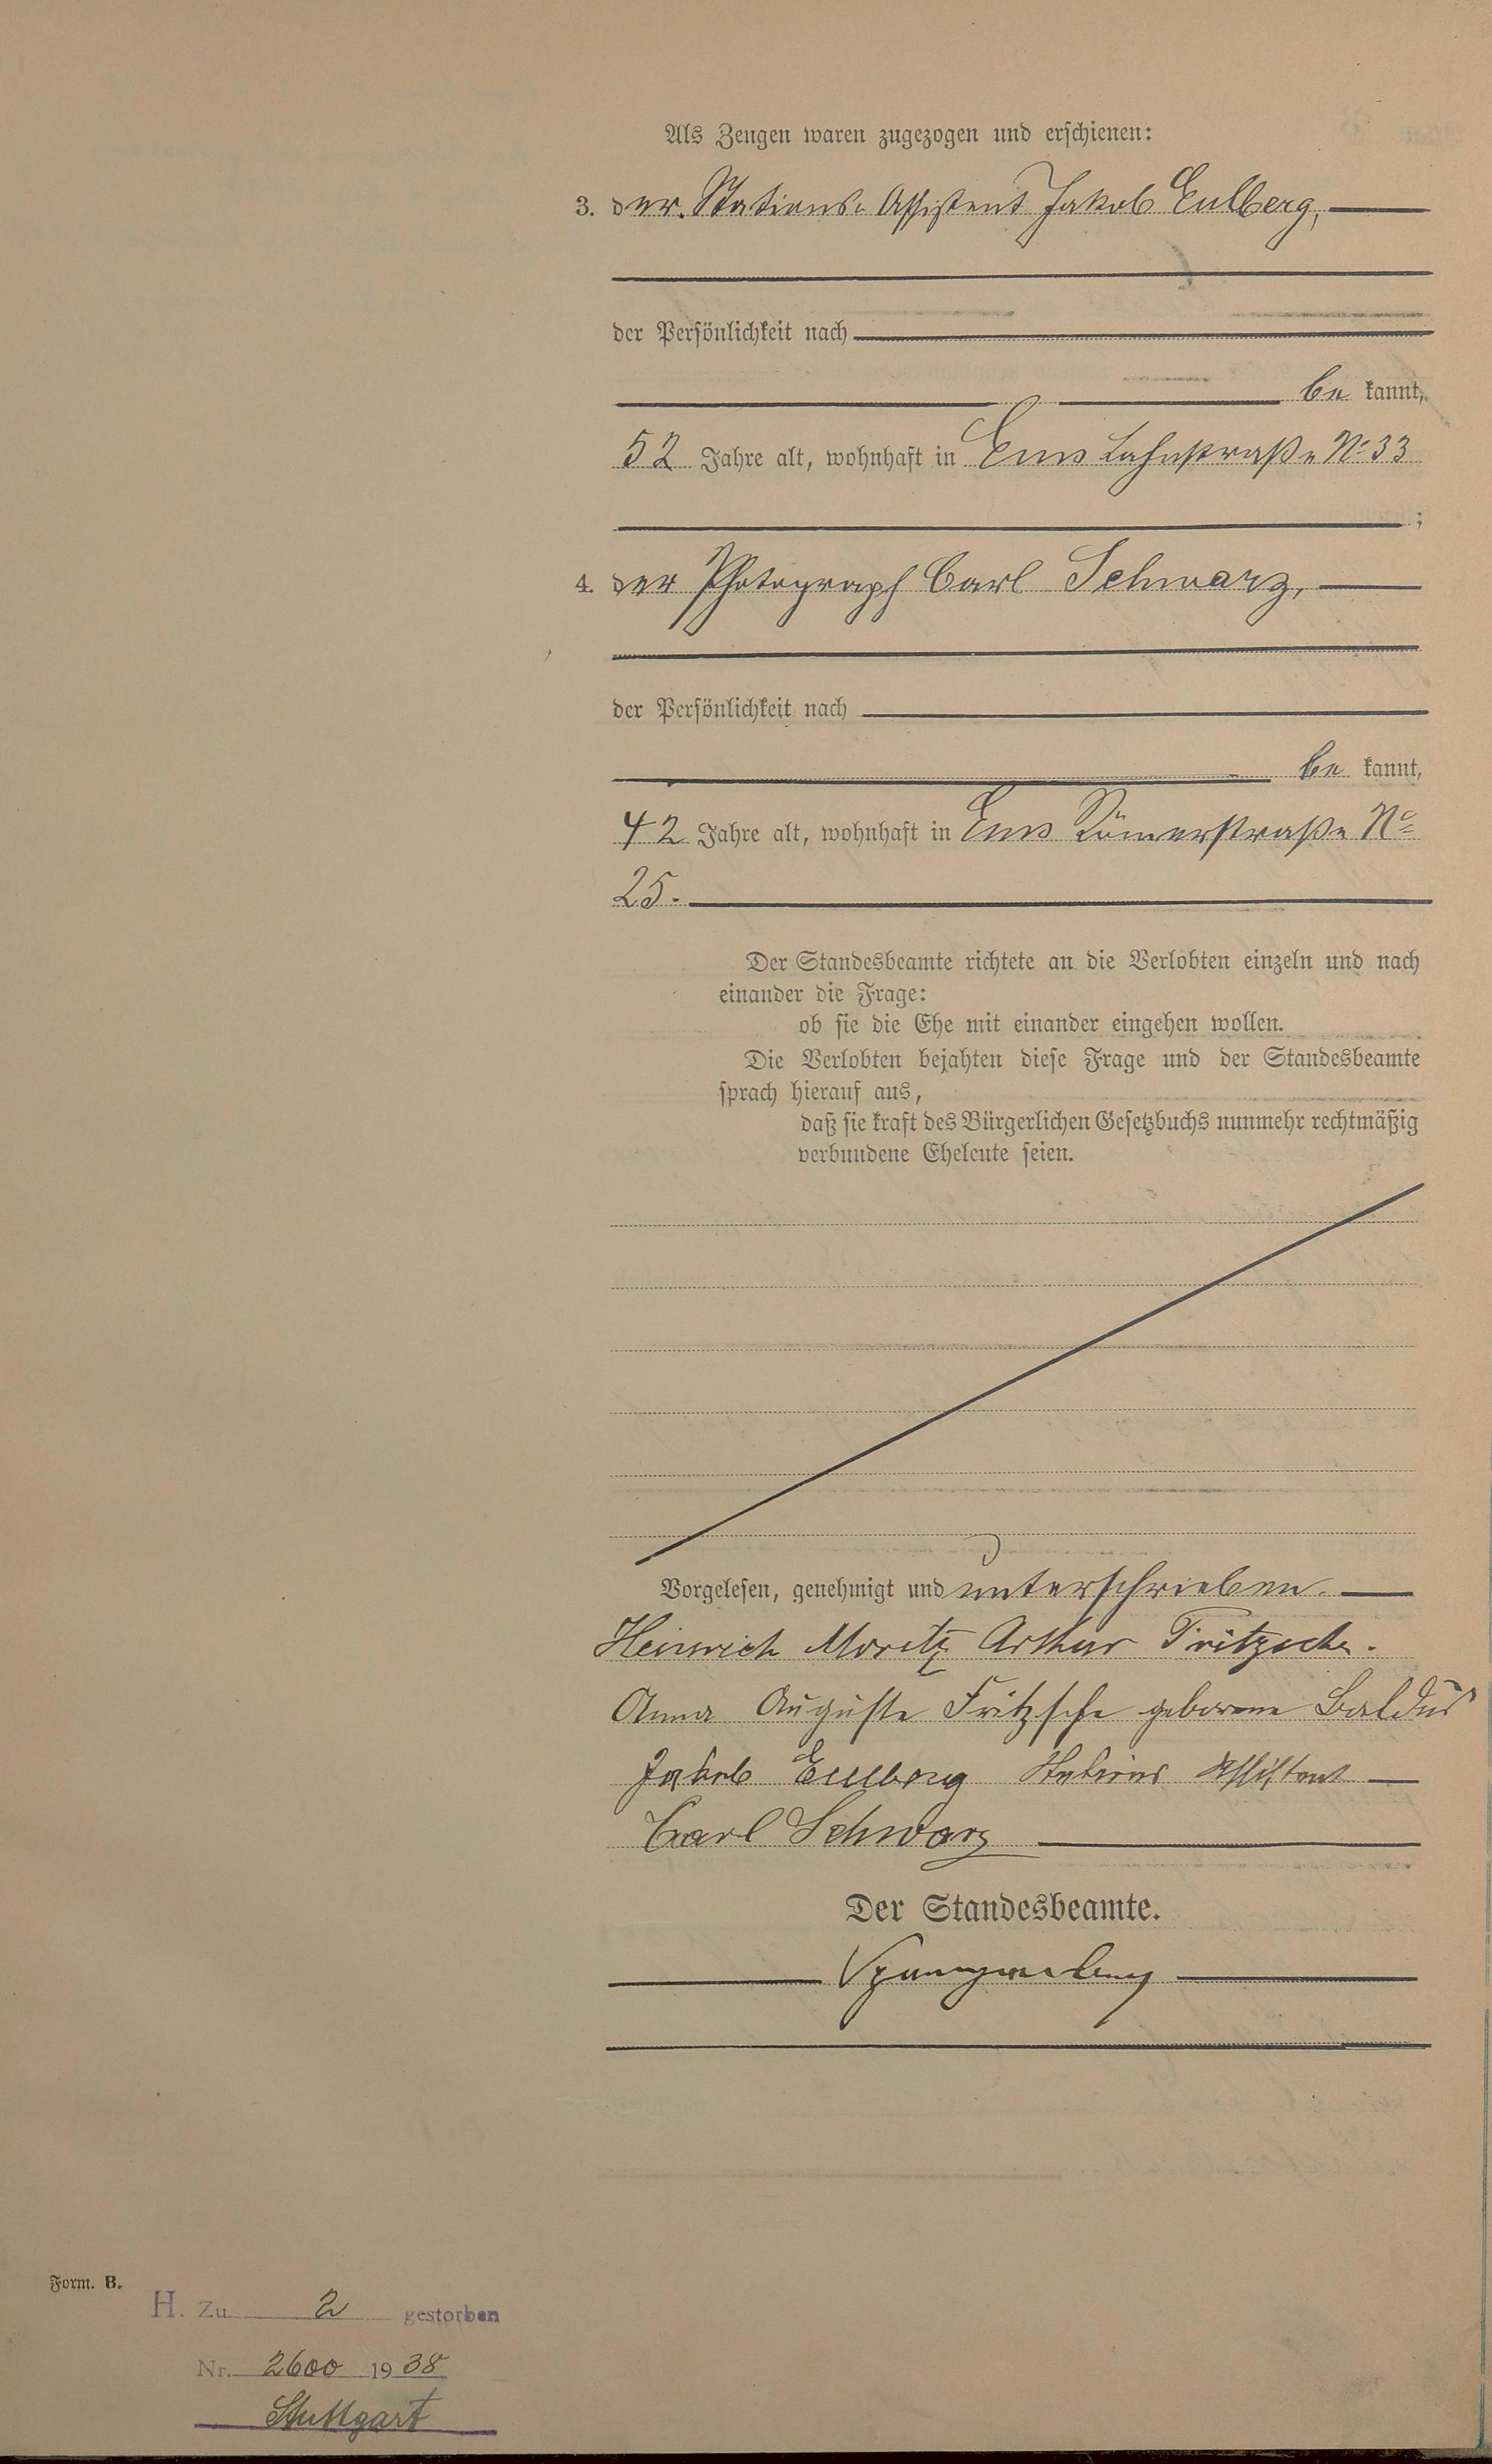 Als Zeugen waren zugezogen und erschienen:
3. der Stations-Assistent Jakob Eulberg,
der Persönlichkeit nach
be kannt,
52 Jahre alt, wohnhaft in Ems Lahnstraße No 33
;
4. der Photograph Carl Schwarz,
der Persönlichkeit nach
be kannt,
42 Jahre alt, wohnhaft in Ems Römerstraße No
25.
Der Standesbeamte richtete an die Verlobten einzeln und nach
einander die Frage:
ob sie die Ehe mit einander eingehen wollen.
Die Verlobten bejahten diese Frage und der Standesbeamte
sprach hierauf aus,
daß sie kraft des Bürgerlichen Gesetzbuchs nunmehr rechtmäßig
verbundene Eheleute seien.
Vorgelesen, genehmigt und unterschrieben.
Heinrich Moritz Arthur Fritzsche.
Anna Auguste Fritzsche geborene Baldus
Jakob Eulberg Stations Assistent
Carl Schwarz
Der Standesbeamte.
Form. B.
H. Zu 2 gestorben
Nr. 2600 1938
Stuttgart